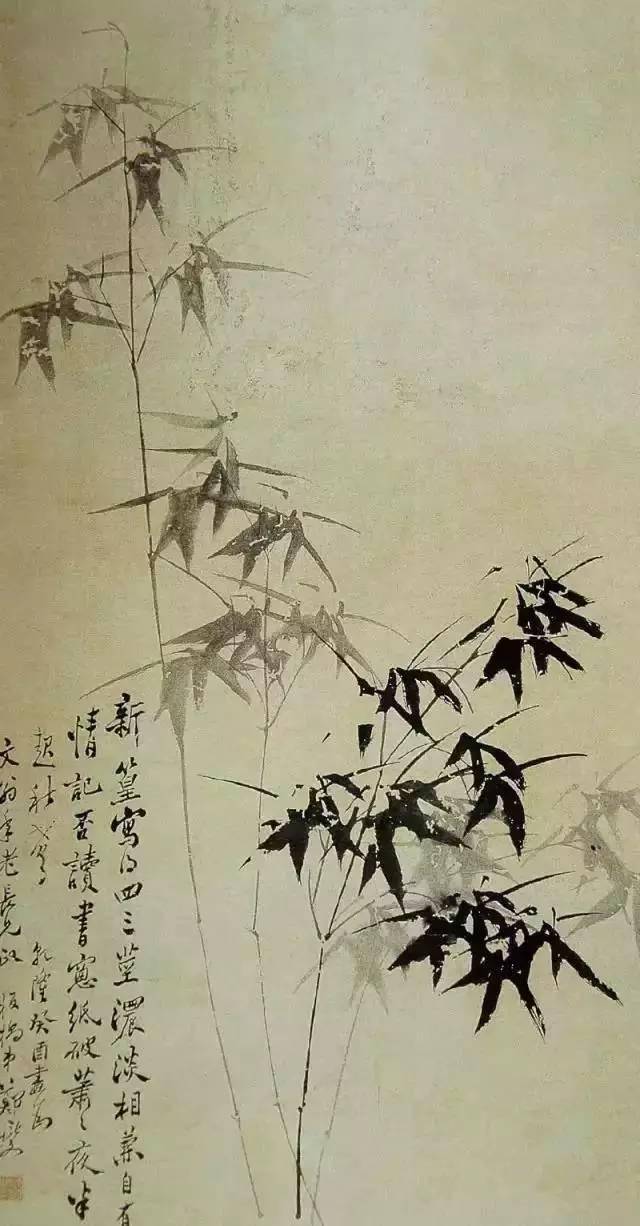 新篁寫得四三莖濃淡相兼自有
情記否讀書窻紙破蕭〻夜半
起秋聲 乾隆癸酉畫為
文翁年老長兄政 板橋弟鄭燮